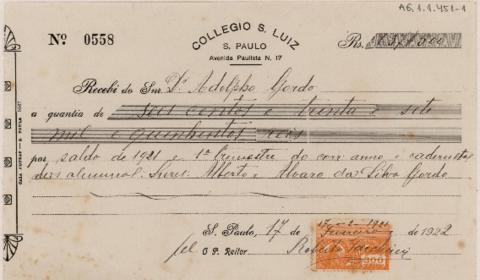 A6.1.1.451-1
Nº 0558
COLLEGIO S. LUIZ
S. PAULO
Avenida Paulista N. 17
Rs. 637$500
Recebi do Snr. Dr Adolpho Gordo
a quantia de seis centos e trinta e sete
mil e quinhentos reis
por saldo de 1921 e 1º trimestre do corr. anno e cadernetas
dos alumnos: Alberto e Alvaro da Silva Gordo
S. Paulo, 17 de Fevereiro de 1922
O P. Reitor
Roberto
300